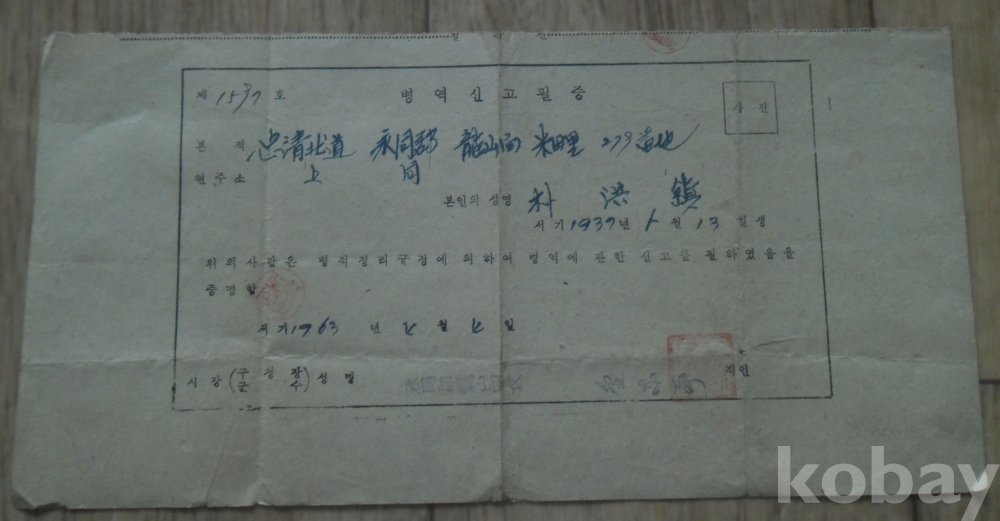 제 1597 호 병역신고필증
사진
본적 忠淸北道 永同郡 龍山面 米田里 279番地
현주소 上 同
본인의 성명 朴 洪 鎭
서기 1937년 1월 13일생
위의사람은 병적정리규정에 의하여 병역에 관한 신고를 필하였음을
증명함
서기 1963 년 月 일
시장(구청장 군수) 성명
직인
kobay